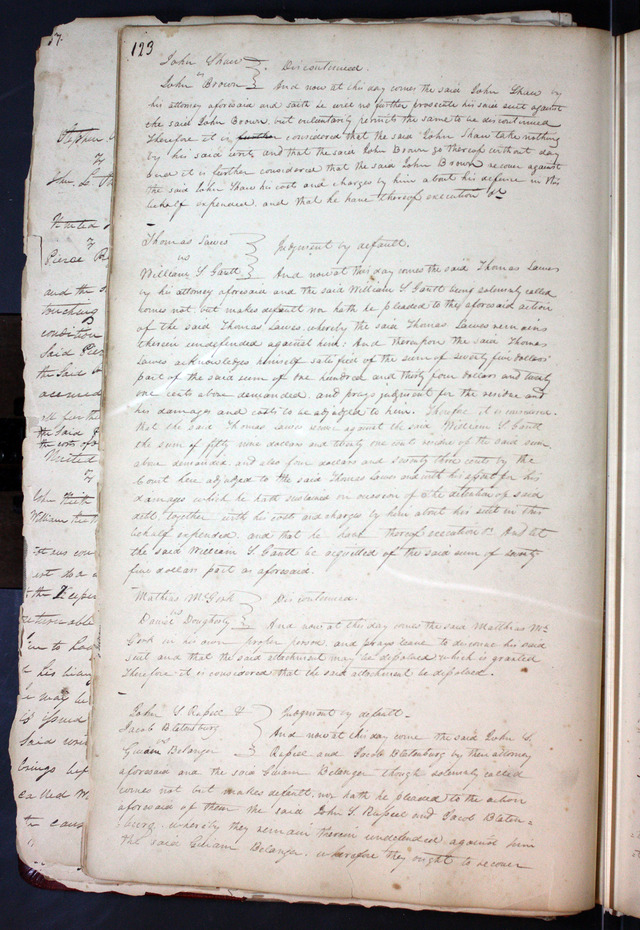 123
John Shaw
vs Discontinued.
John Brown And now at this day comes the said John Shaw by
his attorney aforesaid and saith he will no further prosecute his said suit against
the said John Brown, but voluntarily permits the same to be discontinued
Therefore it is further considered that the said John Shaw take nothing
by his said writ, and that the said John Brown go thereof without day
and it is further considered that the said John Brown recover against
the said John Shaw his cost and charges by him about his defence in this
behalf expended, and that he have thereof execution &c
Thomas Lawes
vs Judgment by default.
William S Gantt And now at this day comes the said Thomas Lawes
by his attorney aforesaid and the said William S Gantt being solemnly called
comes not, but makes default nor hath he pleaded to the aforesaid action
of the said Thomas Lawes whereby the said Thomas Lawes remains
therein undefended against him: And thereupon the said Thomas
Lawes acknowledges himself satisfied of the sum of seventy five dollars
part of the said sum of one hundred and thirty four dollars and twenty
one cents above demanded, and prays judgment for the residue and
his damages and costs to be adjudged to him. Therefore it is considered
that the said Thomas Lawes recover against the said William S Gantt
the sum of fifty nine dollars and twenty one cents residue of the said sum
above demanded, and also four dollars and seventy three cents by the
Court here adjudged to the said Thomas Lawes and with his assent for his
damages which he hath sustained on occasion of the detention of said
debt, together with his cost and charges by him about his suit in this
behalf expended, and that he have thereof execution &c. And let
the said William S. Gantt be acquitted of the said sum of seventy
five dollars part as aforesaid.
Mathias McGirk Discontinued.
vs
Daniel Dougherty And now at this day comes the said Matthias Mc
Girk in his own proper person, and prays leave to discontinue his said
suit and that the said attachment may be dissolved which is granted
Therefore it is considered that the said attachment be dissolved.
John S. Russel & Judgment by default.
Jacob Blatenburg And now at this day come the said John S.
vs
Gwiam Belanger Russel and Jacob Blatenburg by their attorney
aforesaid and the said Gwiam Belanger though solemnly called
comes not but makes default, nor hath he pleaded to the action
aforesaid of them the said John S. Russel and Jacob Blaten=
burg, whereby they remain therein undefended against him
the said Gwiam Belanger, wherefore they ought to recover
57
Stephen
vs
John
United
vs
Pierce
and the
touching
condition
said Pierce
the said
for the
the said
the costs of
United
vs
John
William
not to
the
returnable
to had
his
may be
issued
said writ
brings
called
the cause